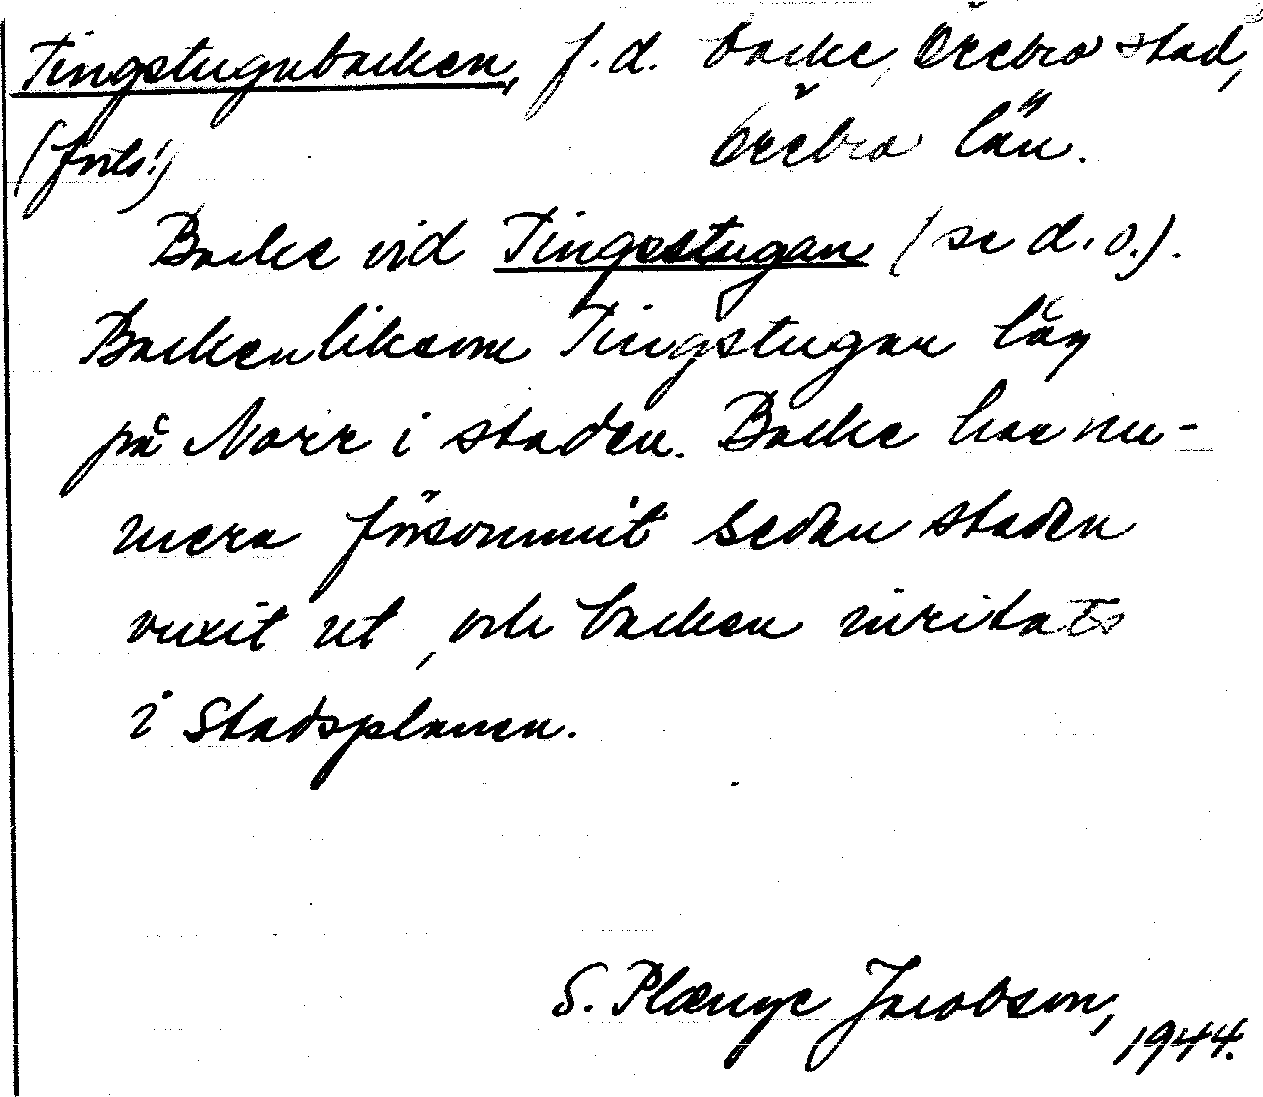 Tingstugubacken, f.d. backe, Örebro stad,
(förls!) Örebro län.
Backe vid Tingsstugan (se d.o.).
Backen liksom Tingstugan låg
på Norr i staden. Backe har nu-
mera försvunnit sedan staden
vuxit ut, och backen inritats
i Stadsplanen.
S. Plænge Jacobson,
1944.